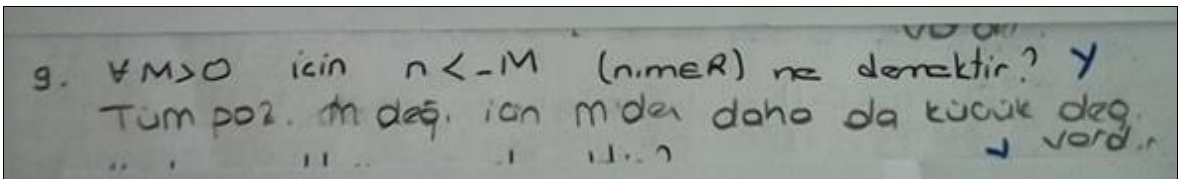 9. ∀M>0 için n<-M (n,m∈R) ne demektir? Y
Tüm poz. m değ. için m'den daha da küçük değ.
vardır